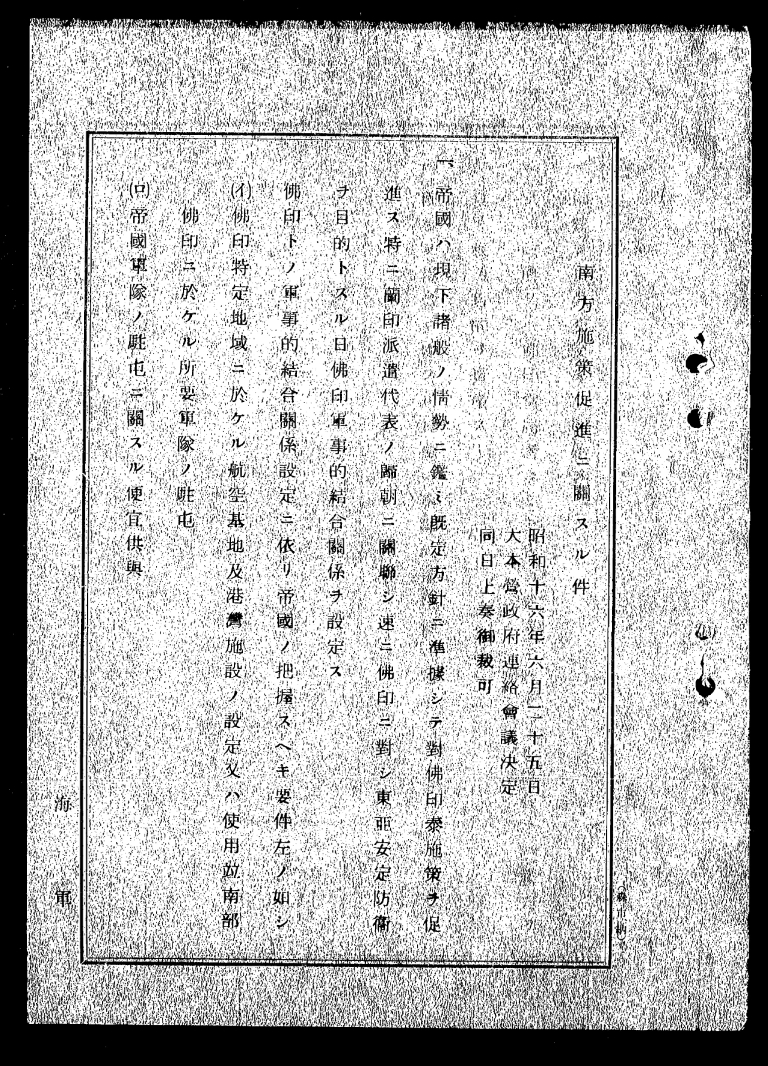 南方施策促進ニ關スル件
昭和十六年六月二十五日
大本營政府連絡會議決定
同日上奏御裁可
一、帝國ハ現下諸般ノ情勢ニ鑑ミ既定方針ニ準據シテ對佛印泰施策ヲ促
進ス特ニ蘭印派遣代表ノ歸朝ニ關聯シ速ニ佛印ニ對シ東亜安定防衞
ヲ目的トスル日佛印軍事的結合關係ヲ設定ス
佛印トノ軍事的結合關係設定ニ依リ帝國ノ把握スヘキ要件左ノ如シ
(イ)佛印特定地域ニ於ケル航空基地及港灣施設ノ設定又ハ使用竝南部
佛印ニ於ケル所要軍隊ノ駐屯
(ロ)帝國軍隊ノ駐屯ニ關スル便宜供與
海軍